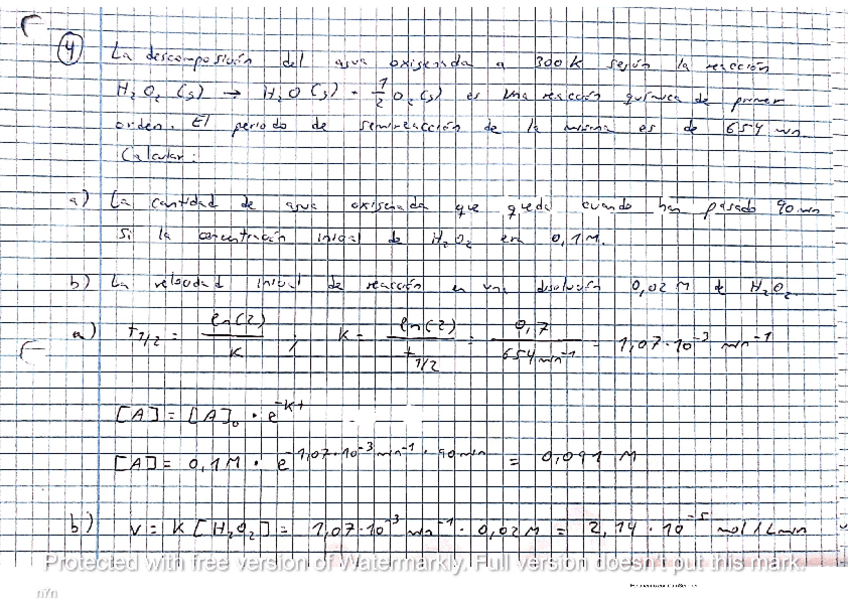 4
La descomposición del agua oxigenada a 300 K según la reacción
H₂O₂ (g) → H₂O (g) + 1/2 O₂ (g) es una reacción química de primer
orden. El periodo de semireacción de la misma es de 654 min.
Calcular:
a) La cantidad de agua oxigenada que queda cuando han pasado 90 min
si la concentración inicial de H₂O₂ era 0,1 M.
b) La velocidad inicial de reacción en una disolución 0,02 M de H₂O₂.
a) t₁/₂ = ln(2)/K ; K = ln(2)/t₁/₂ = 0,7/654 min⁻¹ = 1,07·10⁻³ min⁻¹
[A] = [A]₀ · e^-Kt
[A] = 0,1 M · e^-1,07·10⁻³ min⁻¹ · 90 min = 0,091 M
b) v = K [H₂O₂] = 1,07·10⁻³ min⁻¹ · 0,02 M = 2,14 · 10⁻⁵ mol/L min
Protected with free version of Watermarkly. Full version doesn't put this mark.